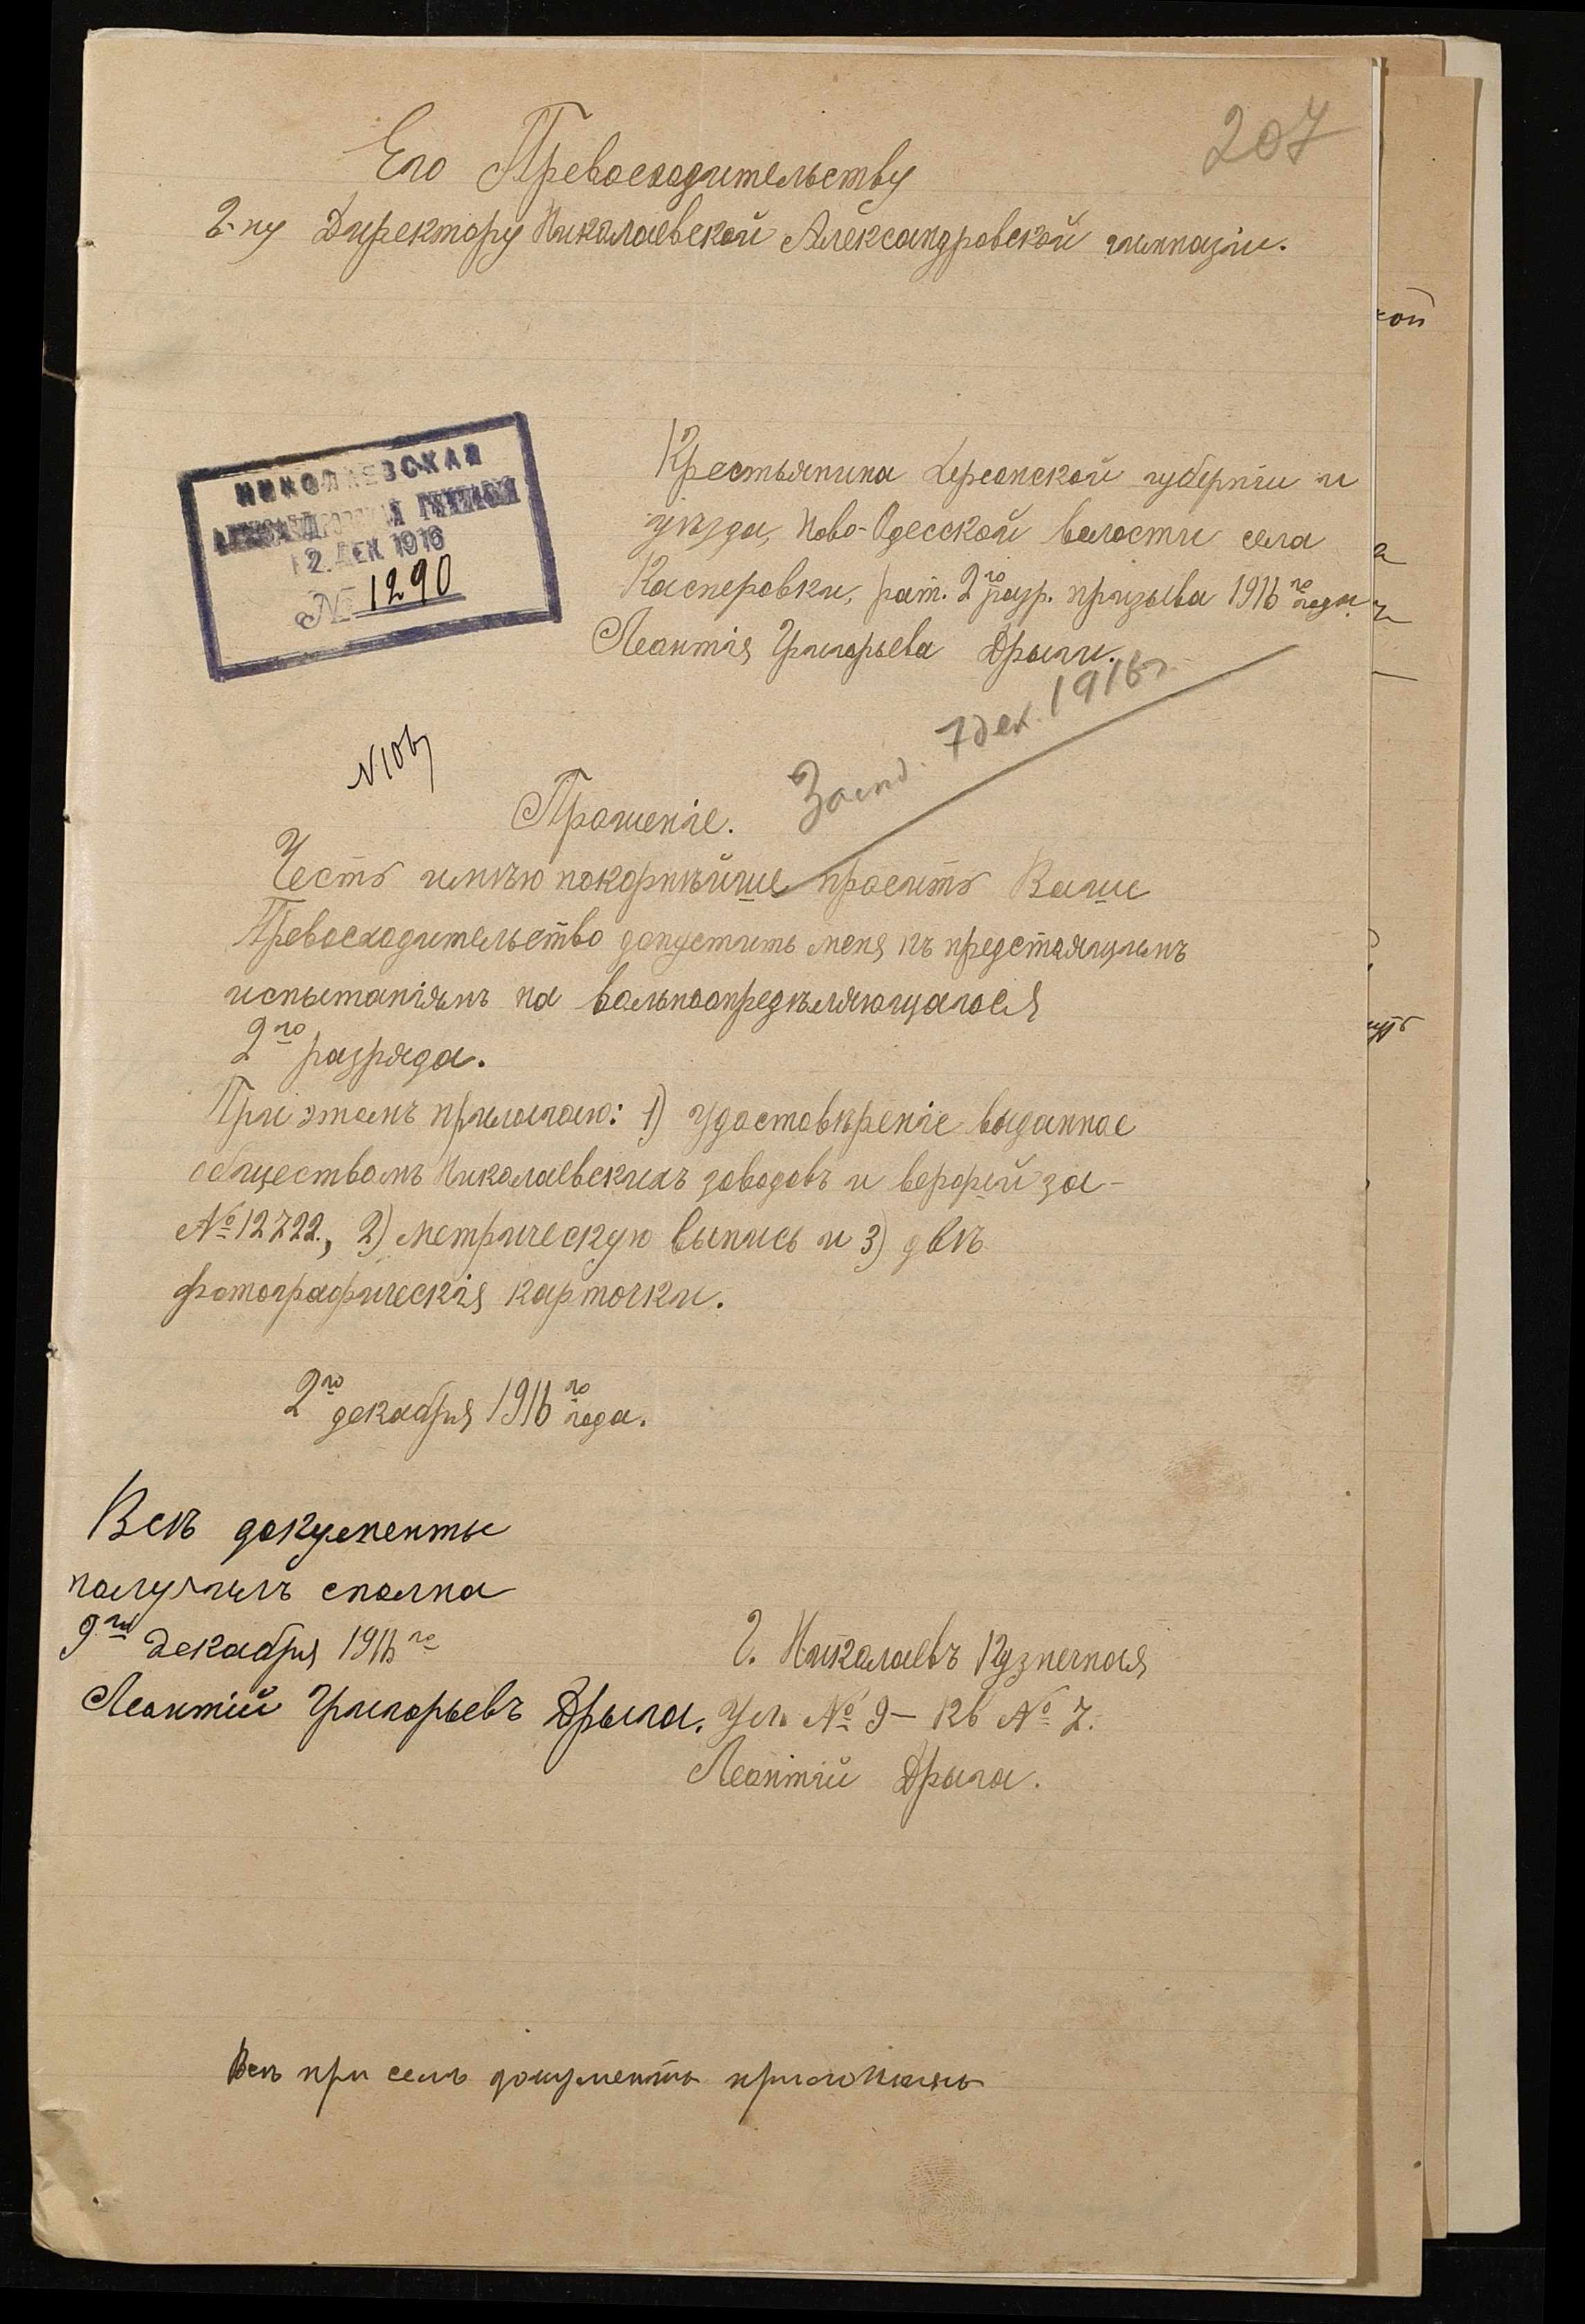 207
Его Превосходительству
Г-ну Директору Николаевской Александровской гимназіи.
НИКОЛАЕВСКАЯ
АЛЕКСАНДРОВСКАЯ ГИМНАЗІЯ
2. ДЕК 1916
№ 1290
Крестьянина Херсонской губерніи и
уѣзда, Ново-Одесской волости села
Касперовки, рат. 2го разр. призыва 1916го года
Леонтія Григорьева Дрыги.
7 дек. 1916г.
Прошеніе.
Честь имѣю покорнѣйше просить Ваше
Превосходительство допустить меня къ предстоящимъ
испытаніямъ на вольноопредѣляющагося
2го разряда.
При этомъ прилагаю: 1) удостовѣреніе выданное
обществомъ Николаевскихъ заводовъ и верфей за-
№ 12722., 2) метрическую выпись и 3) двѣ
фотографическія карточки.
2го декабря 1916го года.
Всѣ документы
получилъ сполна
9го декабря 1916го
Леонтій Григорьевъ Дрыга.
Г. Николаевъ Кузнечная
Ул. № 9 – кв № 7.
Леонтій Дрыга.
Всѣ при семъ документы приложены